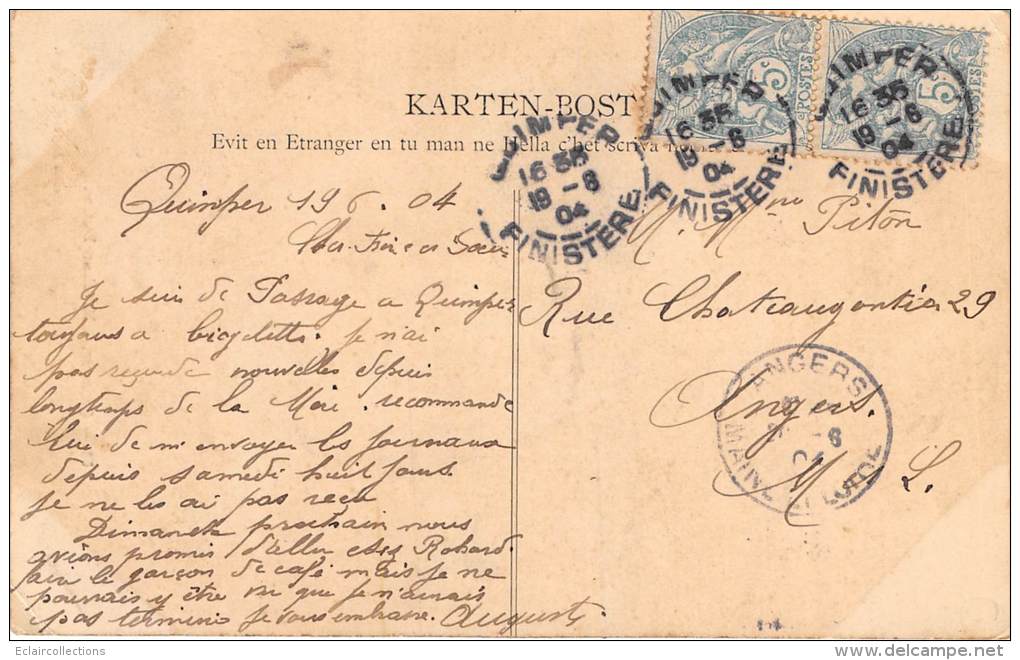 KARTEN-BOST
Evit en Etranger en tu man ne Hella c'het scriva
5c
POSTES
5c
POSTES
QUIMPER
16 35
19 -6
04
FINISTERE
QUIMPER
16 35
19 -6
04
FINISTERE
QUIMPER
16 35
19 -6
04
FINISTERE
Quimper 19 6 . 04
Cher Frère et Soeur
Je suis de Passage a Quimper
toujours a bicyclette. je n'ai
pas reçu de nouvelles depuis
longtemps de la Mère . recommande
lui de m'envoyer les journaux
depuis samedi huit jours
je ne les ai pas reçu
Dimanche prochain nous
avions promis d'aller chez Rohard
le garçon de café mais je ne
pourrais y être vu que je n'aurais
pas terminé je vous embrasse. Auguste
M. Mme Piton
Rue Chateaugontier 29
Angers.
M L.
ANGERS
-6
04
MAINE ET LOIRE
Eclaircollections
delcampe.net